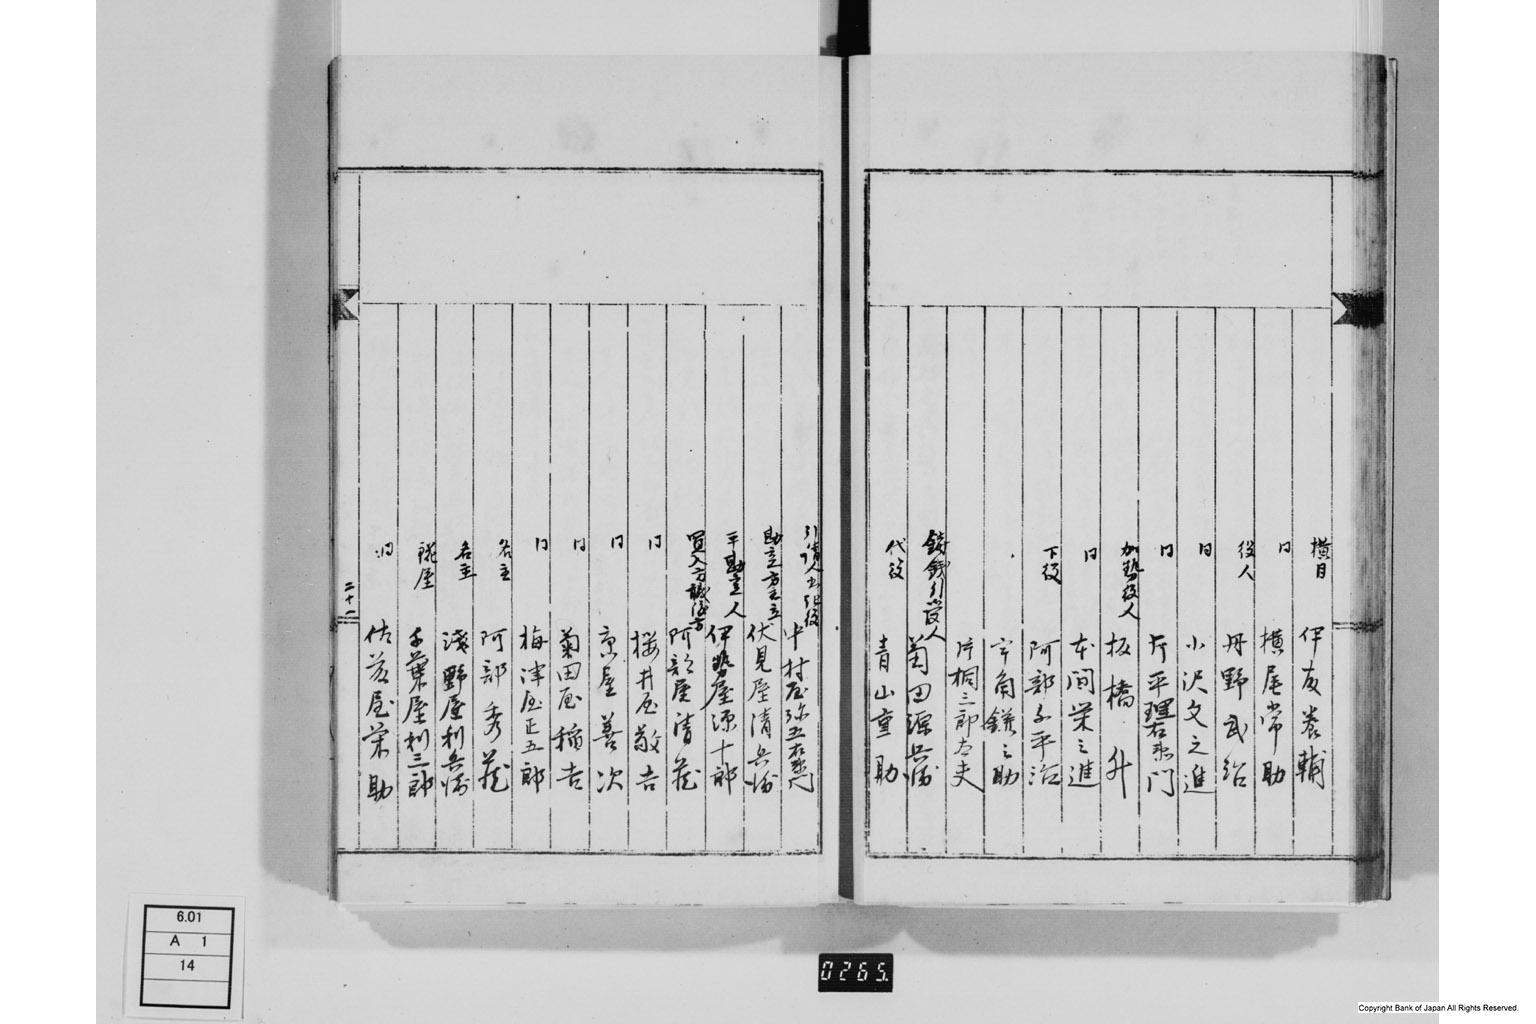 横目 伊友巻輔
同 横尾常助
役人 丹野武治
同 小沢文之進
同 片平理右衛門
加勢役人 板橋升
同 本間栄之進
下役 阿部子平治
宇角鎌之助
片桐三郎太夫
鋳銭引受人 菊田源兵衛
代役 青山重助
引請人出張役 中村屋弥五右衛門
助立方 伏見屋清兵衛
平助立人 伊勢屋源十郎
買入方 阿部屋清蔵
同 桜井屋敬吉
同 京屋善次
同 菊田屋稲吉
同 梅津屋正五郎
名主 阿部秀蔵
名主 浅野屋利兵衛
千葉屋利三郎
同 佐藤屋栄助
二十二
6.01
A 1
14
0265.
Copyright Bank of Japan All Rights Reserved.